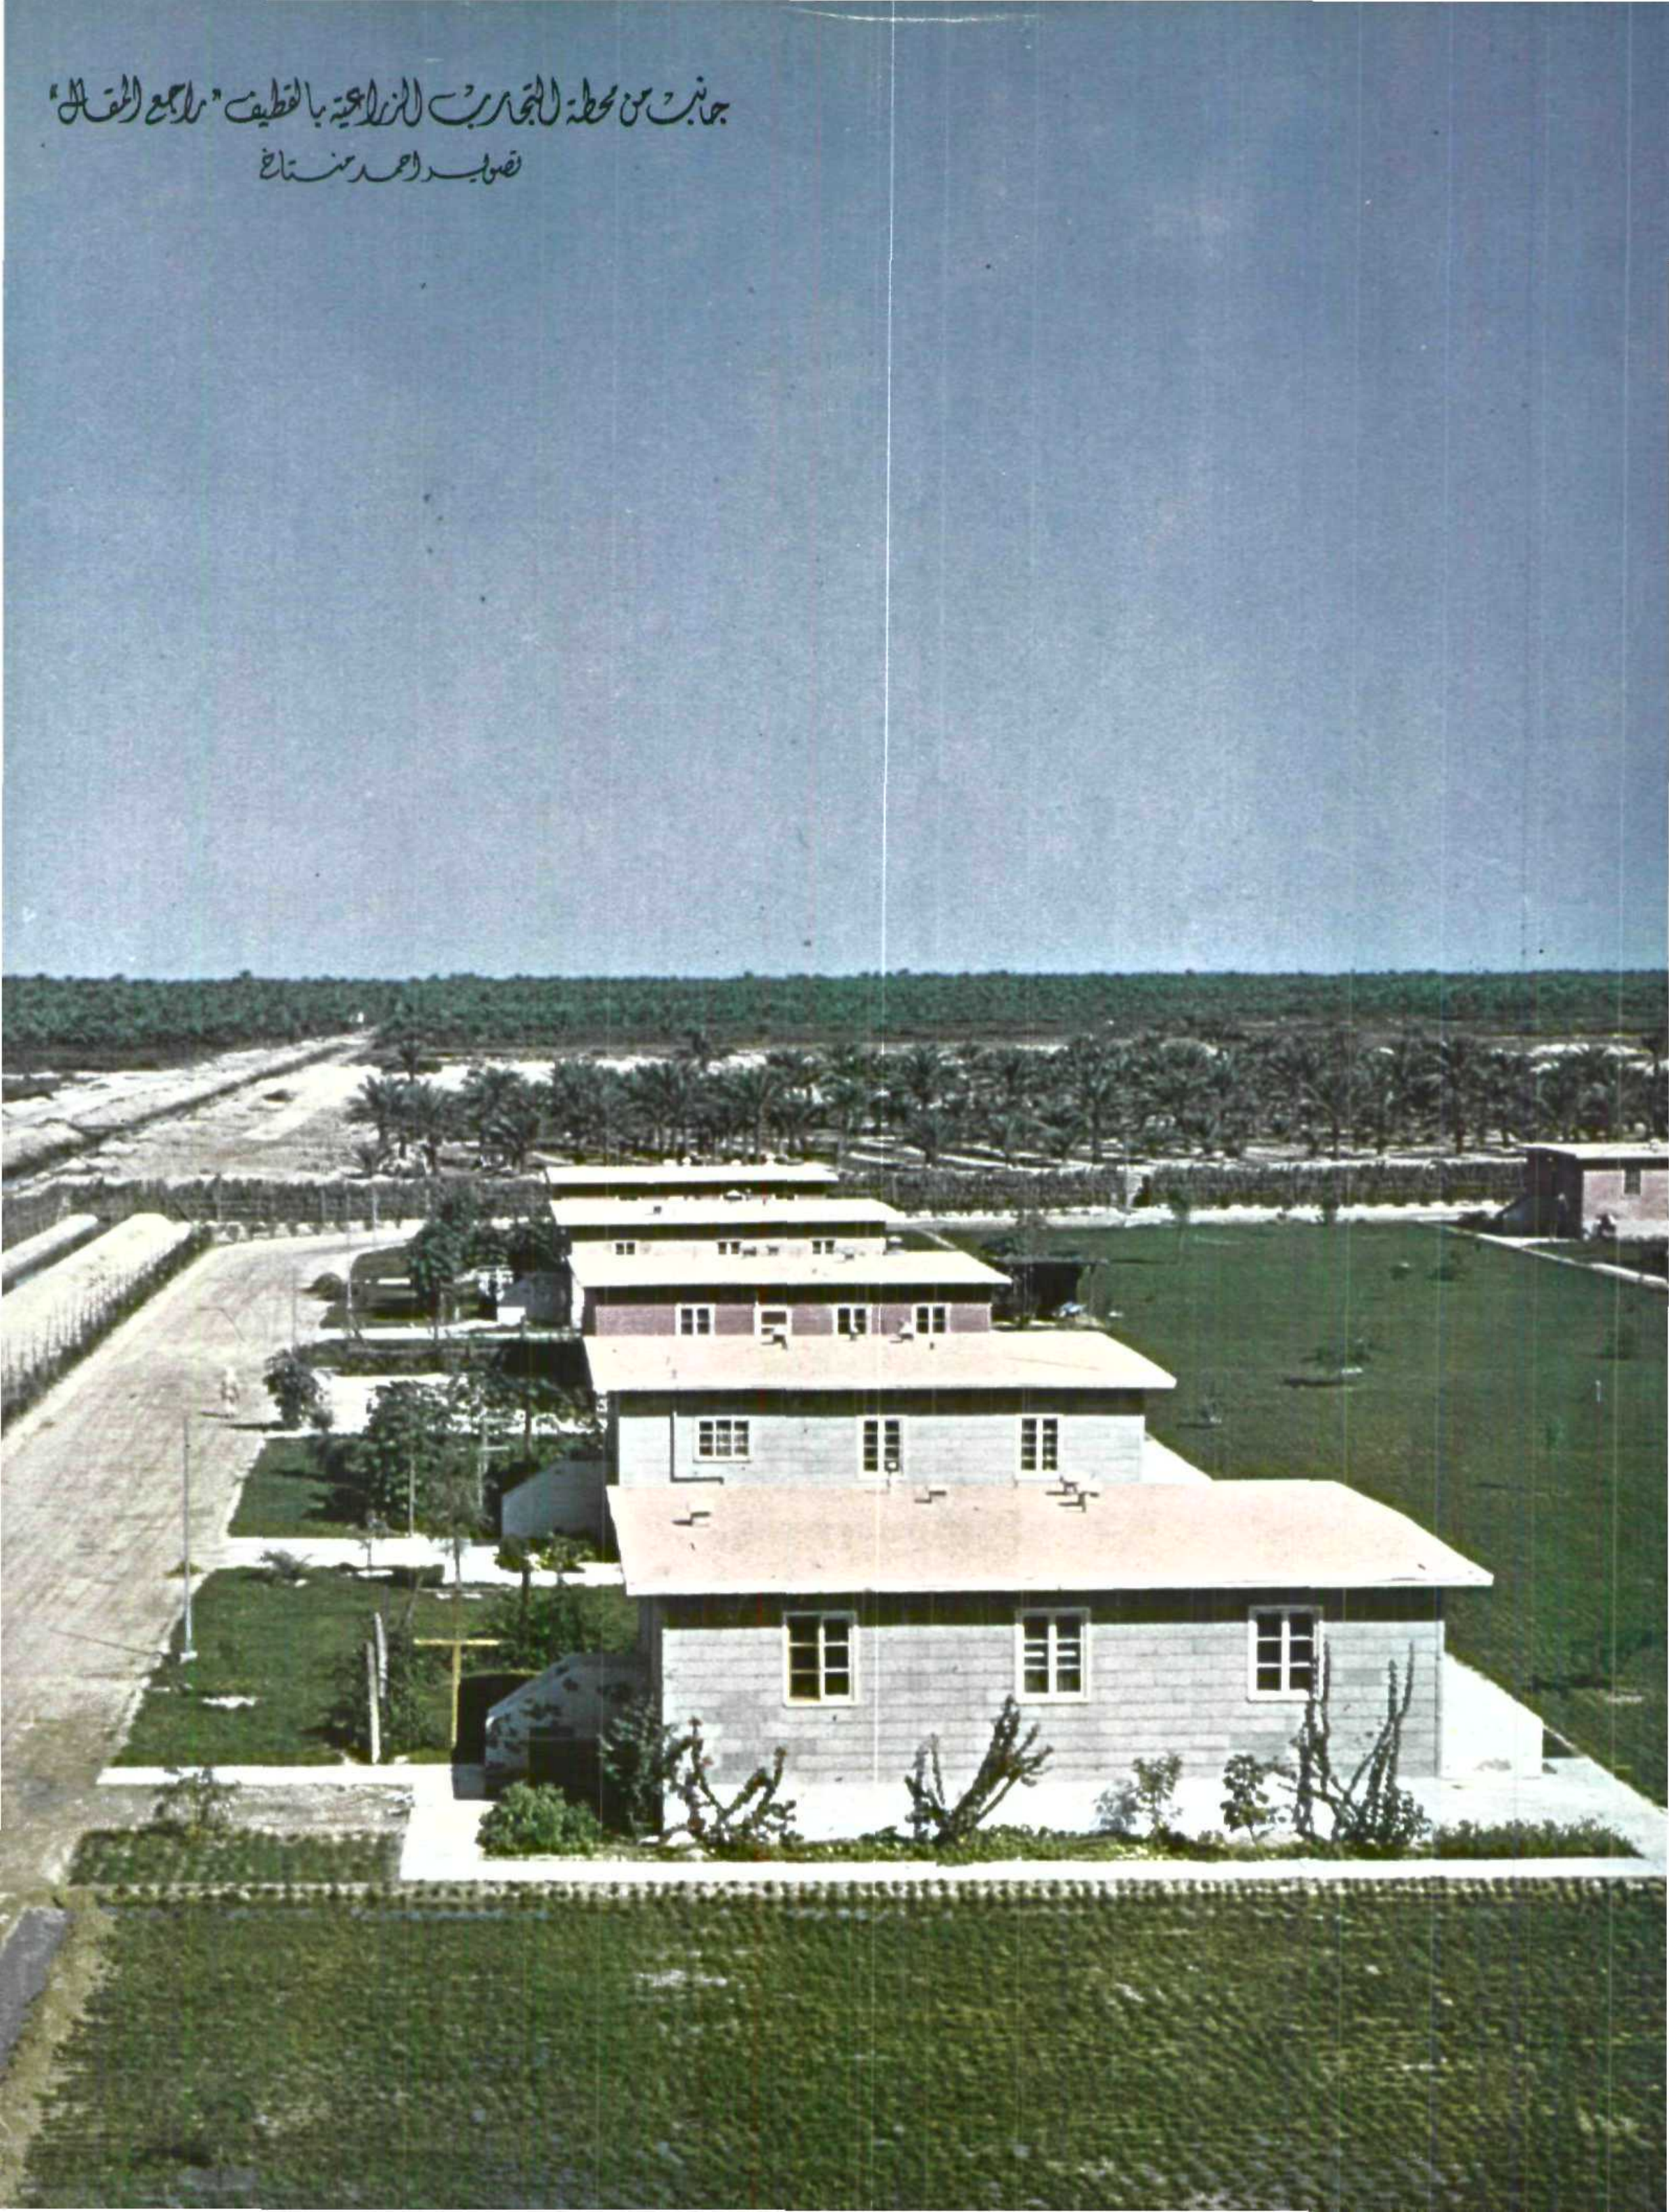 جانب من محطة التجارب الزراعية بالقطيف "راجع المقال"
تصوير احمد منتاخ